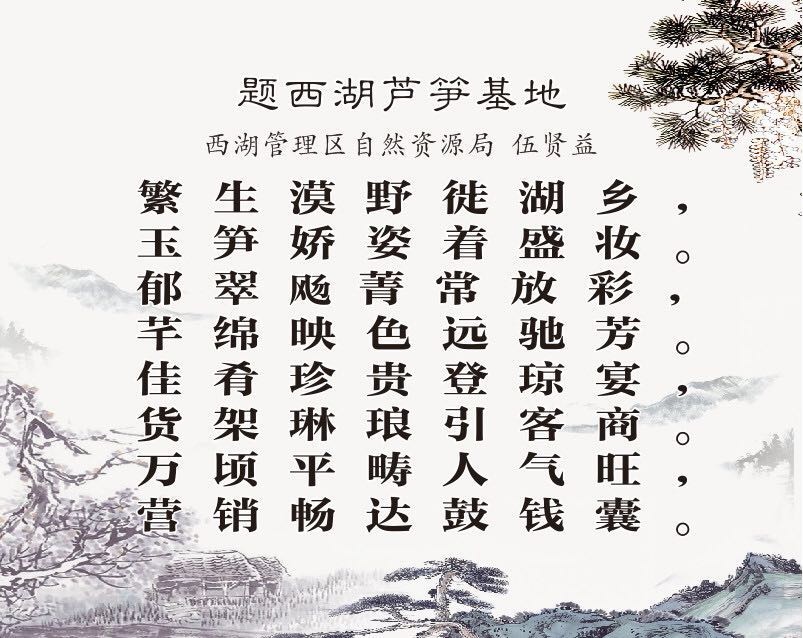 题西湖芦笋基地
西湖管理区自然资源局 伍贤益
繁生漠野徙湖乡，
玉笋娇姿着盛妆。
郁翠飏菁常放彩，
芊绵映色远驰芳。
佳肴珍贵登琼宴，
货架琳琅引客商。
万顷平畴人气旺，
营销畅达鼓钱囊。